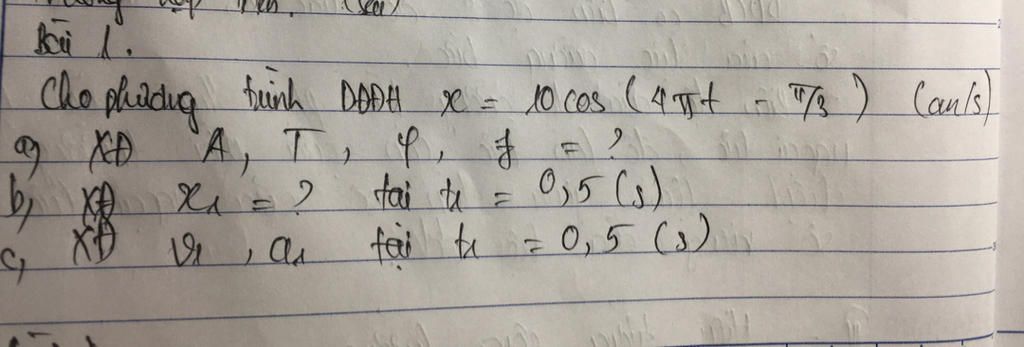 Bài 1.
Cho phương trình DĐĐH x = 10 cos (4πt - π/3) (cm/s)
a, XĐ A, T, φ, f = ?
b, XĐ x₁ = ? tại t₁ = 0,5 (s)
c, XĐ v₁, a₁ tại t₁ = 0,5 (s)